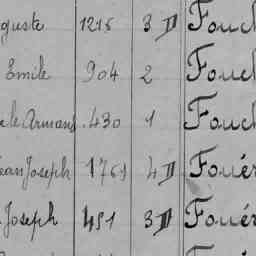 guste 1215 3 II Fouc
Emile 904 2 Fouc
le Armand 430 1 Fouc
ean Joseph 1761 4 II Fouér
Joseph 451 3 II Fouér